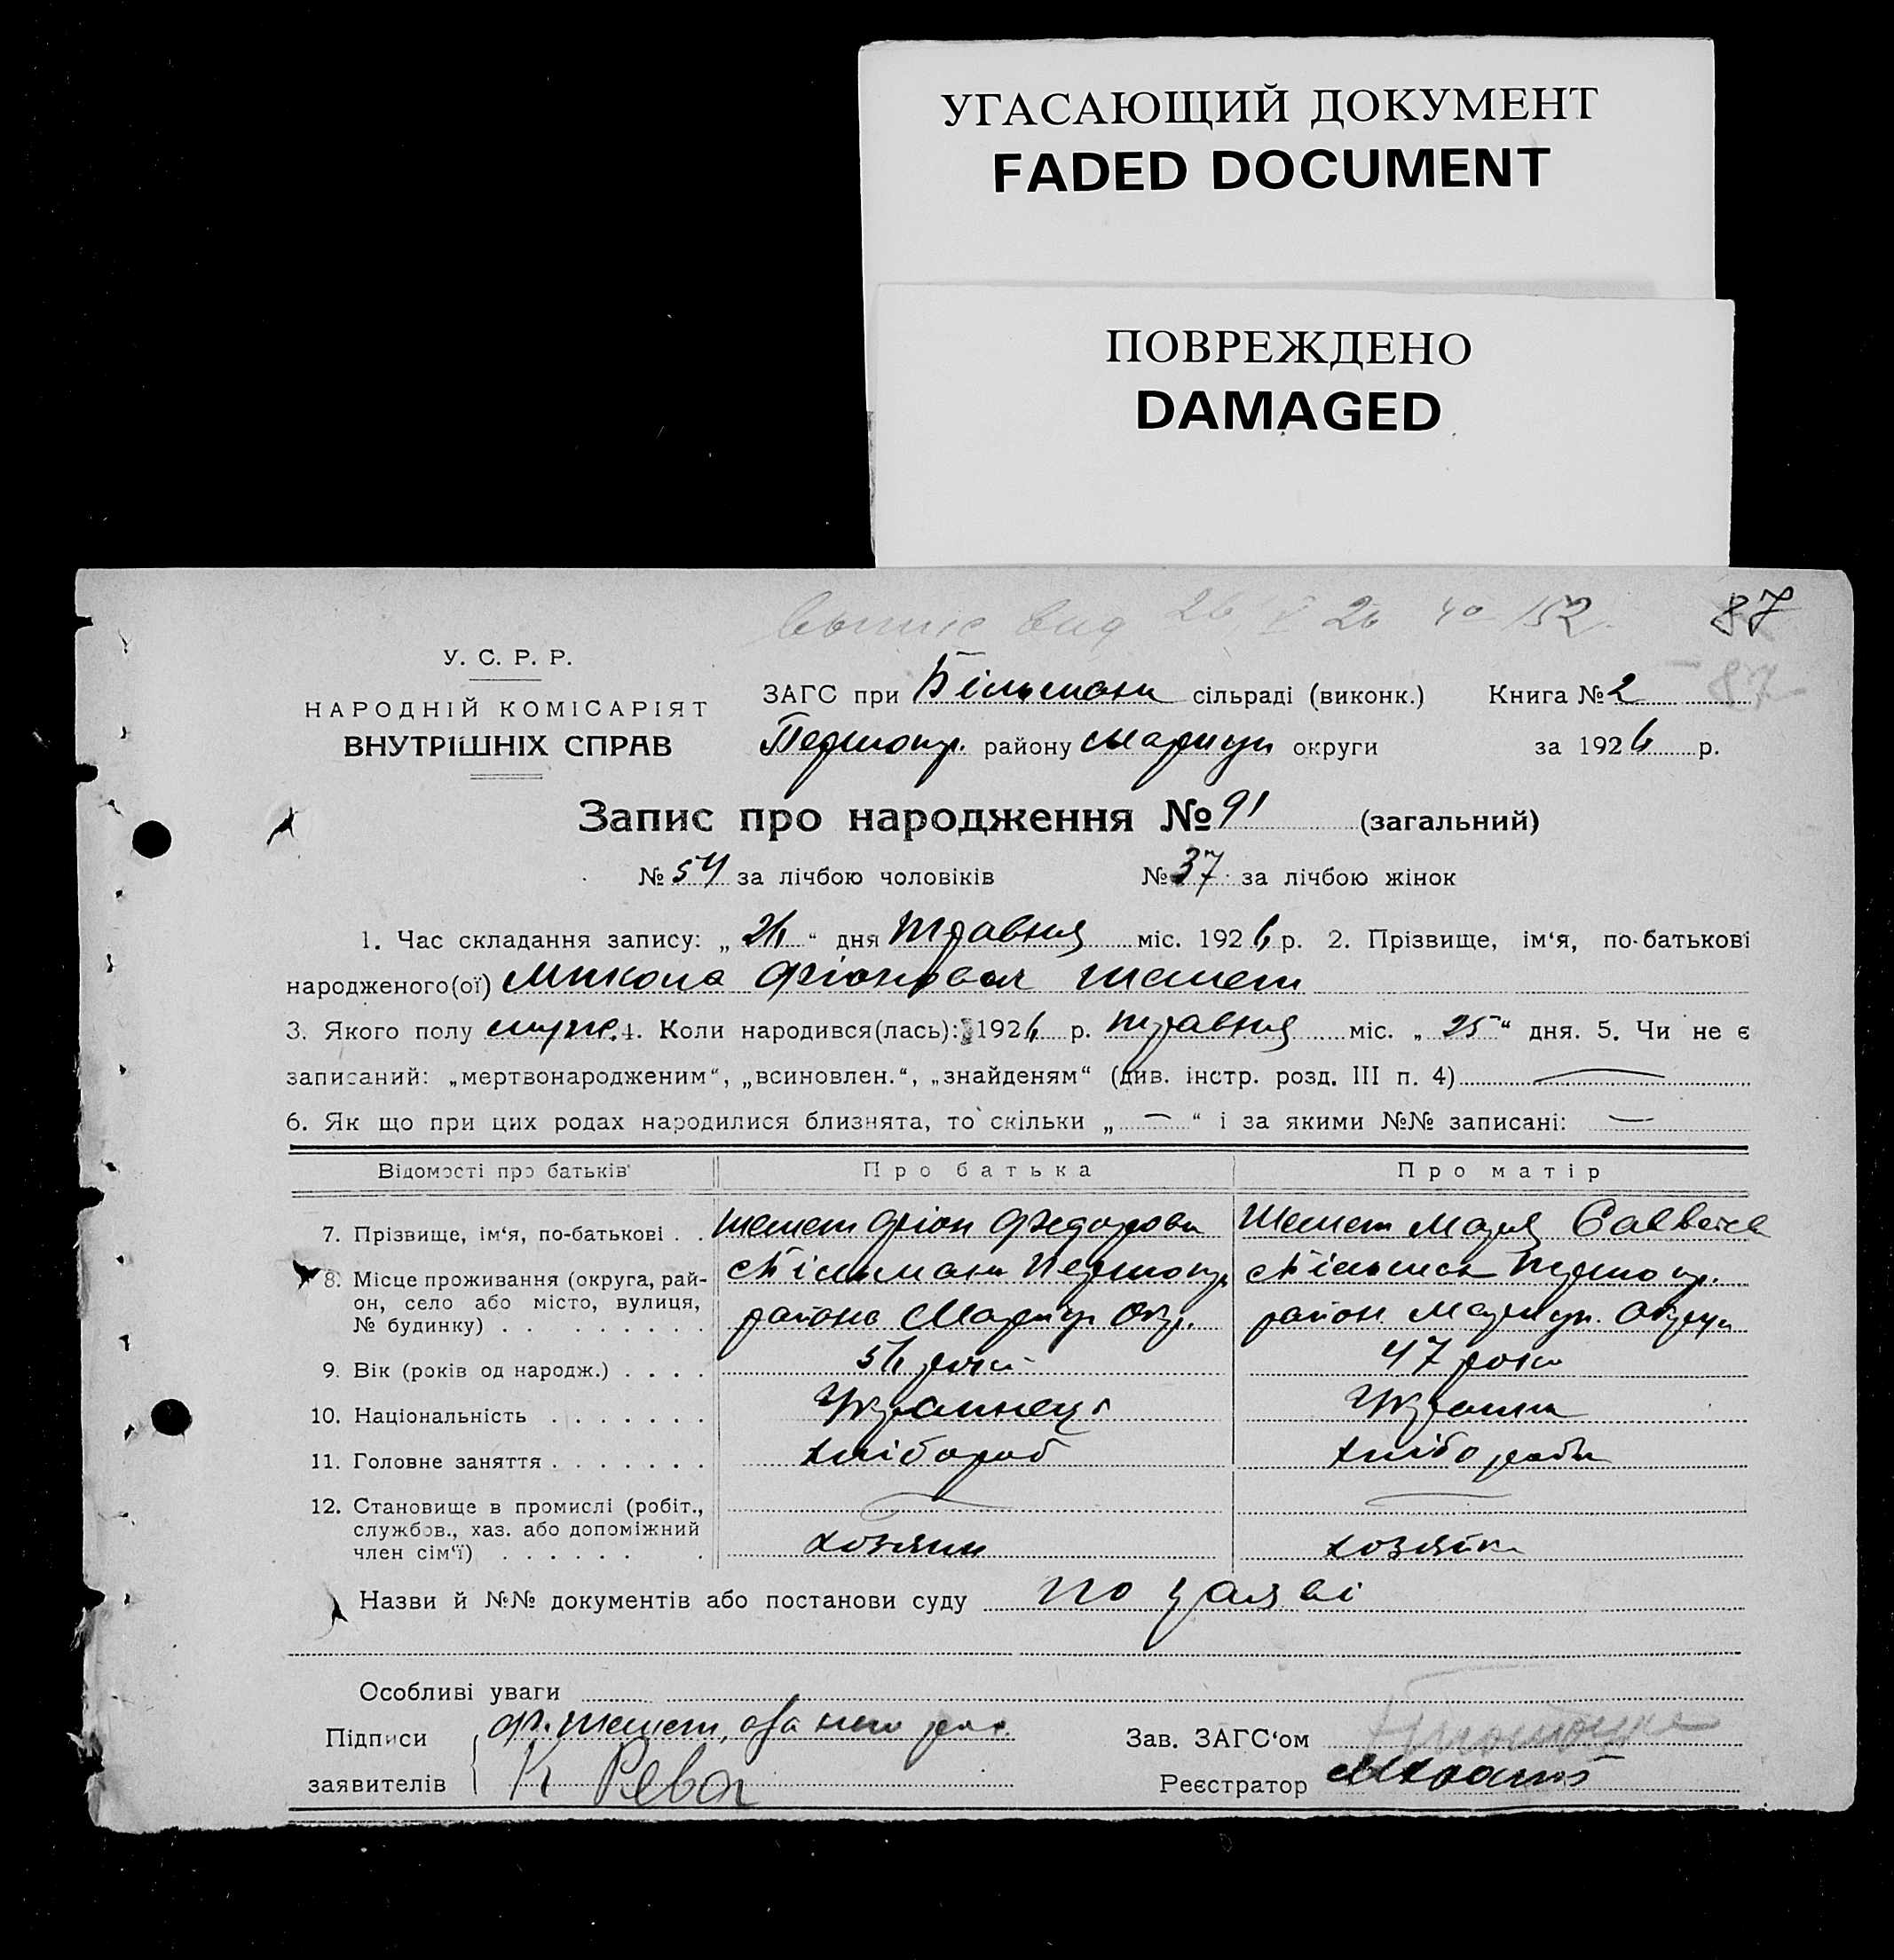 УГАСАЮЩИЙ ДОКУМЕНТ
FADED DOCUMENT
ПОВРЕЖДЕНО
DAMAGED
26 V 26 152. 87
87
У. С. Р. Р.
НАРОДНІЙ КОМІСАРІЯТ
ВНУТРІШНІХ СПРАВ
ЗАГС при Більмань сільраді (виконк.) Книга № 2
Першопр. району Маріуп округи за 1926 р.
Запис про народження № 91 (загальний)
№ 54 за лічбою чоловіків № 37 за лічбою жінок
1. Час складання запису: „ 26 “ дня Травня міс. 1926 р. 2. Прізвище, ім‘я, по-батькові
народженого(ої) Микола Фіонов Шемет
3. Якого полу муже. 4. Коли народився(лась): 1926 р. травня міс. „ 25 “ дня. 5. Чи не є
записаний: „мертвонародженим“, „всиновлен.“, „знайденям“ (див. інстр. розд. III п. 4) —
6. Як що при цих родах народилися близнята, то скільки „ — “ і за якими №№ записані: —
Відомості про батьків Про батька Про матір
7. Прізвище, ім‘я, по-батькові . . Шемет Фіон Федорови Шемет Марія
8. Місце проживання (округа, рай-
он, село або місто, вулиця,
№ будинку) . . . . . . . . .
Більмань Першопр. Першопр.
района Маріуп Окр. район Маріуп. Округи
9. Вік (років од народж.) . . . . 56 роки 47 роки
10. Національність . . . . . . . Украинець Украинка
11. Головне заняття . . . . . . . хлібороб хліборобка
12. Становище в промислі (робіт.,
службов., хаз. або допоміжний
член сім‘ї) . . . . . . .
хозяин хозяйка
Назви й №№ документів або постанови суду по заяві
Особливі уваги
Підписи Ф. Шемет, Зав. ЗАГС‘ом
заявителів К Рева Реєстратор